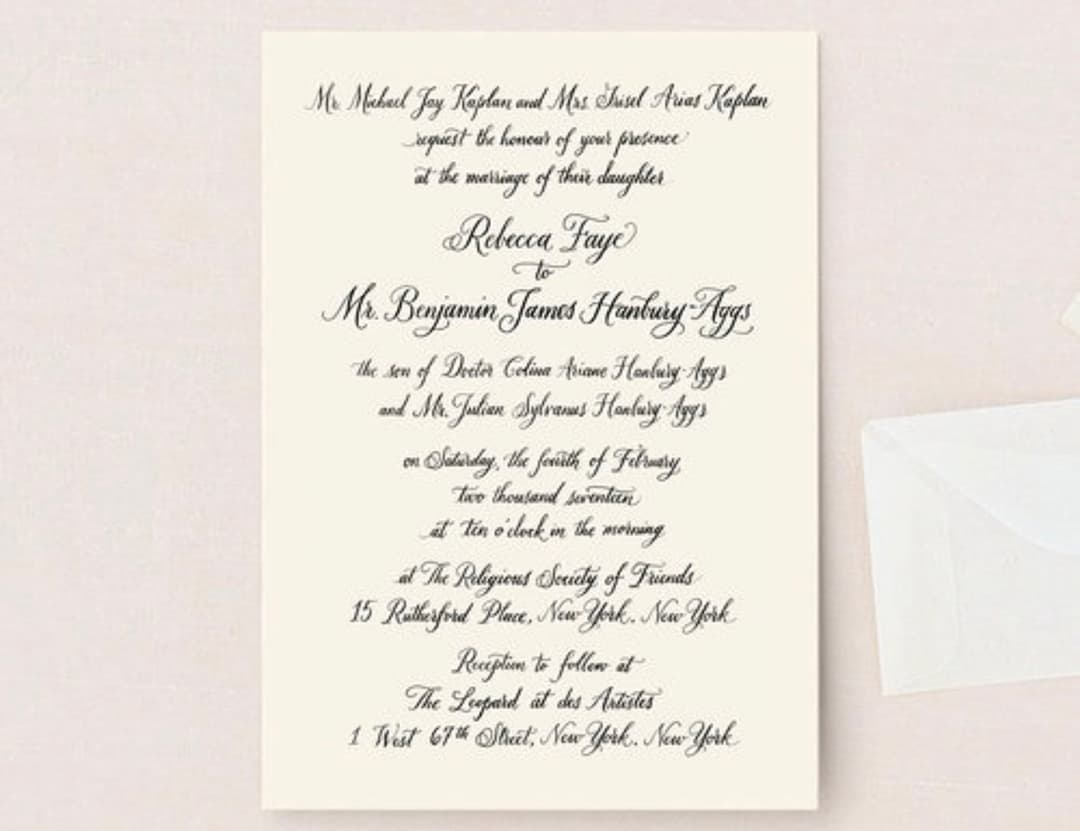 Mr. Michael Jay Kaplan and Mrs. Trisel Arias Kaplan
request the honour of your presence
at the marriage of their daughter
Rebecca Faye
to
Mr. Benjamin James Hanbury-Aggs
the son of Doctor Colina Ariane Hanbury-Aggs
and Mr. Julian Sylvanus Hanbury-Aggs
on Saturday, the fourth of February,
two thousand seventeen
at ten o'clock in the morning
at The Religious Society of Friends
15 Rutherford Place, New York, New York
Reception to follow at
The Leopard at des Artistes
1 West 67th Street, New York, New York